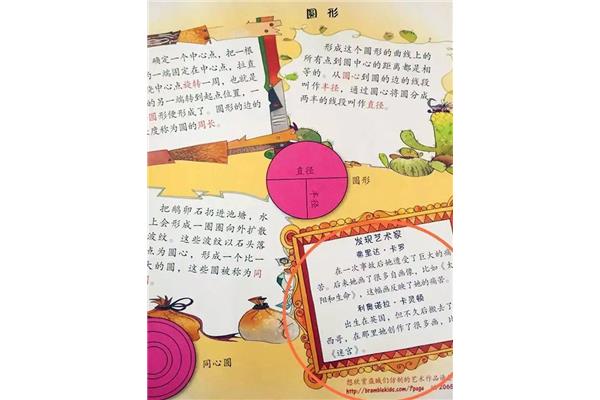 圆 形
确定一个中心点，把一根
的一端固定在中心点，拉直
绕中心点旋转一周，也就是
的另一端转到起点位置，一
圆形便形成了。圆形的边的
长度称为圆的周长。
形成这个圆形的曲线上的
所有点到圆中心的距离都是相
等的。从圆心到圆的边的线段
叫作半径，通过圆心将圆分成
两半的线段叫作直径。
直径
半径
圆形
把鹅卵石扔进池塘，水
上会形成一圈圈向外扩散
波纹。这些波纹以石头落
点为圆心，形成一个比一
大的圆，这些圆被称为同
圆。
同心圆
发现艺术家
弗里达·卡罗
在一次事故后她遭受了巨大的痛
苦。后来她画了很多自画像，比如《太
阳和生命》，这幅画反映了她的痛苦。
利奥诺拉·卡灵顿
出生在英国，但不久后搬去了
西哥，在那里她创作了很多画，比
《迷宫》。
想欣赏盗贼们仿制的艺术作品请
http://bramblekids.com/?page